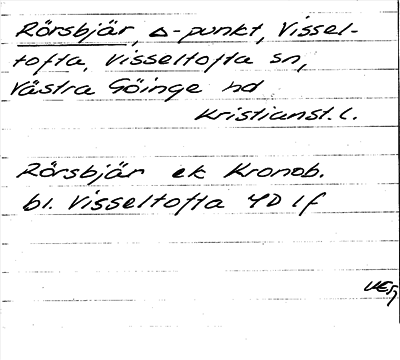 Rörsbjär, △-punkt, Vissel-
tofta, Visseltofta sn,
Västra Göinge hd
Kristianst. l.
Rörsbjär ek Kronob.
bl. Visseltofta 4D 1f